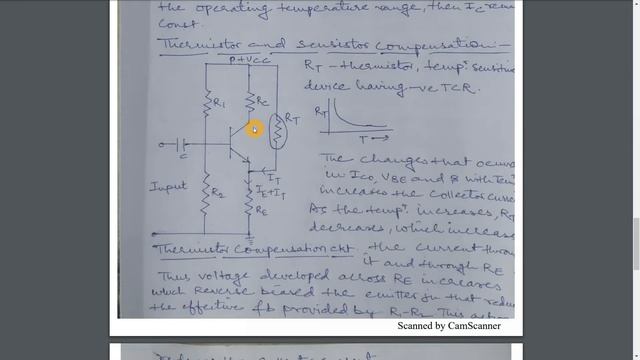 the operating temperature range, then Ic rema
const.
Thermistor and sensistor compensation:-
+VCC
RT - thermistor, temp. sensitive
device having -ve TCR.
R1
RC
RT
RT
T →
C
The changes that occur
Input
IT
in ICO, VBE and β with Tem
IE+IT
increases the collector curre
R2
RE
As the temp. increases, RT
decreases, which increase
Thermistor compensation ckt.
the current throu
it and through RE
Thus voltage developed across RE increases
which Reverse biased the emitter jn that redu
the effective fb provided by R1-R2. This
Scanned by CamScanner